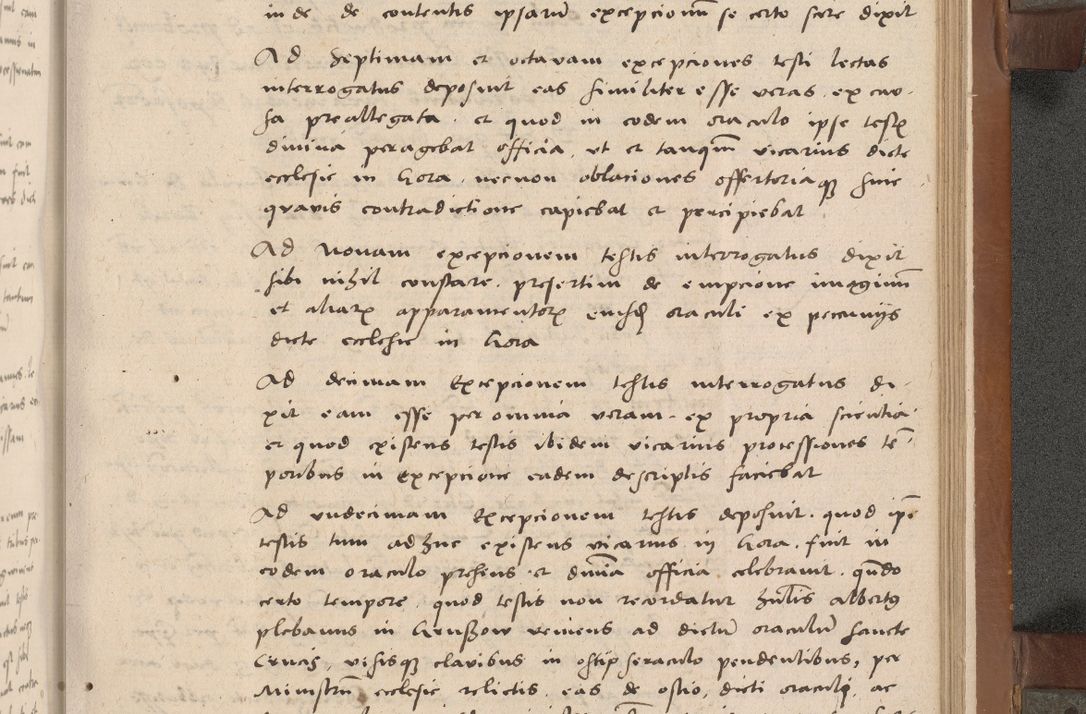 inde de contentis ipsarum excepcionum se certo scire dixit
Ad septimam et octavam excepciones testi lectas
interrogatus deposuit eas similiter esse veras ex cau-
sa preallegata. et quod in eodem oraculo ipse testis
divina peragebat officia, ut et tanquam vicarius dicte
ecclesie in Gora. necnon oblaciones offertoriaque sine
quavis contradictione capiebat et percipiebat
Ad Nonam excepcionem testis interrogatus dixit
sibi nihil constare. presertim de empcione imaginum
et aliarum apparamentorum eiusdem oraculi ex pecuniis
dicte ecclesie in Gora
Ad decimam Excepcionem testis interrogatus di-
xit eam esse per omnia veram. ex propria scientia
et quod existens testis ibidem vicarius processiones tem-
poribus in Excepcione eadem descriptis faciebat
Ad undecimam Excepcionem testis deposuit. quod ipse
testis tum adhuc existens vicarius in Gora. fuit in
eodem oraculo presens et divina officia celebravit. quando
certo tempore quod testis non recordatur Albertus
plebanus in veniens ad dictum oraculum sancte
Crucis, visisque clavibus in seraculo pendentibus, per
Ministrum ecclesie relictis. eas de ostio, dicti oraculi, ac